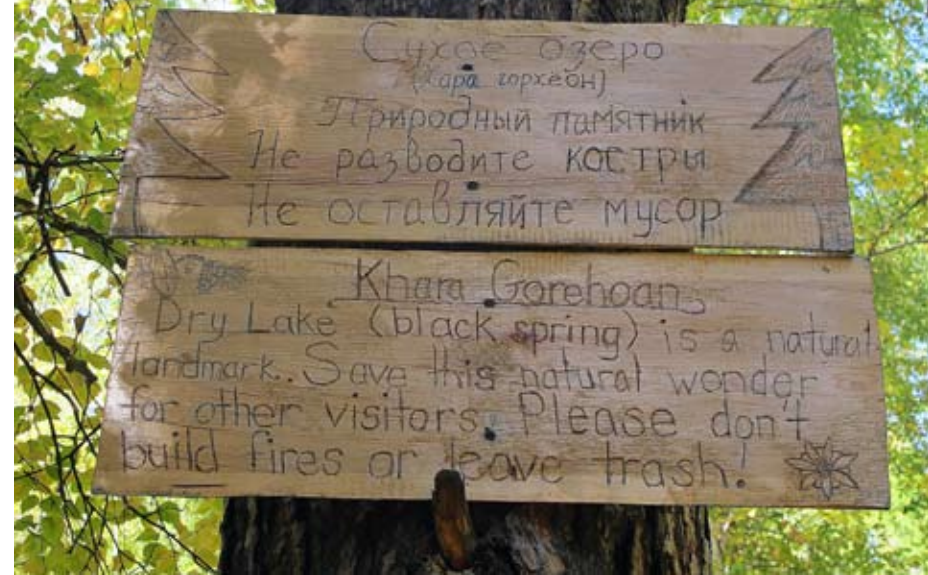 Сухое озеро
(Хара горхёон)
Природный памятник
Не разводите костры
Не оставляйте мусор
Khara Gorehoan
Dry Lake (black spring) is a natural
landmark. Save this natural wonder
for other visitors. Please don't
build fires or leave trash!